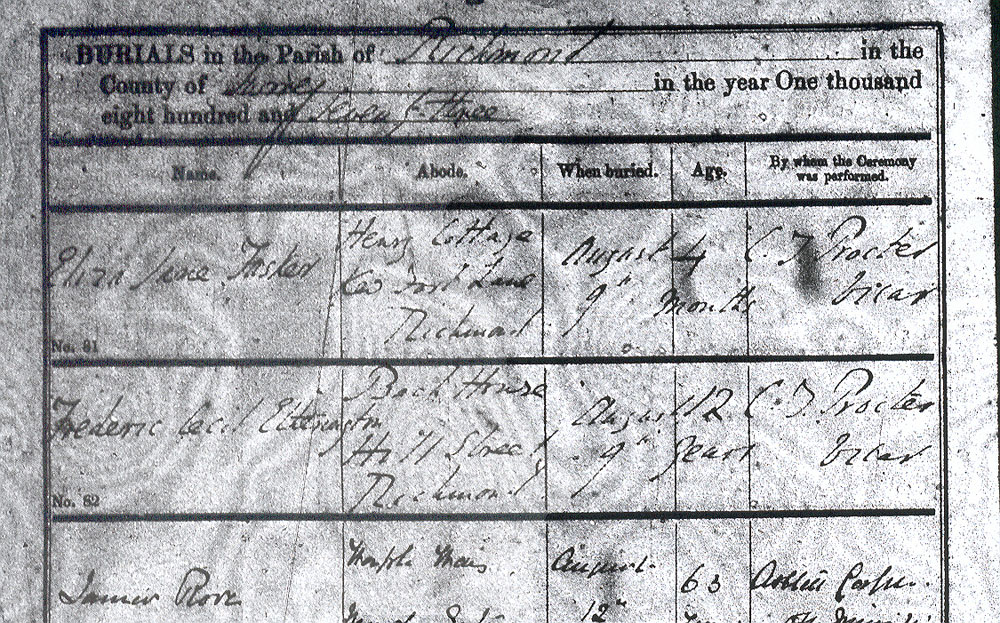 BURIALS in the Parish of Richmond in the
County of Surrey in the year One thousand
eight hundred and seventy three
Name. Abode. When buried. Age. By whom the Ceremony was performed.
Eliza Jane Tasker
Henry Cottage
Kew Foot Lane
Richmond
August
9th
4
months
C. T. Procter
Vicar
No. 81
Frederic Cecil Etherington
Back House
Hill Street
Richmond
August
9th
12
years
C. T. Procter
Vicar
No. 82
August
12th
63